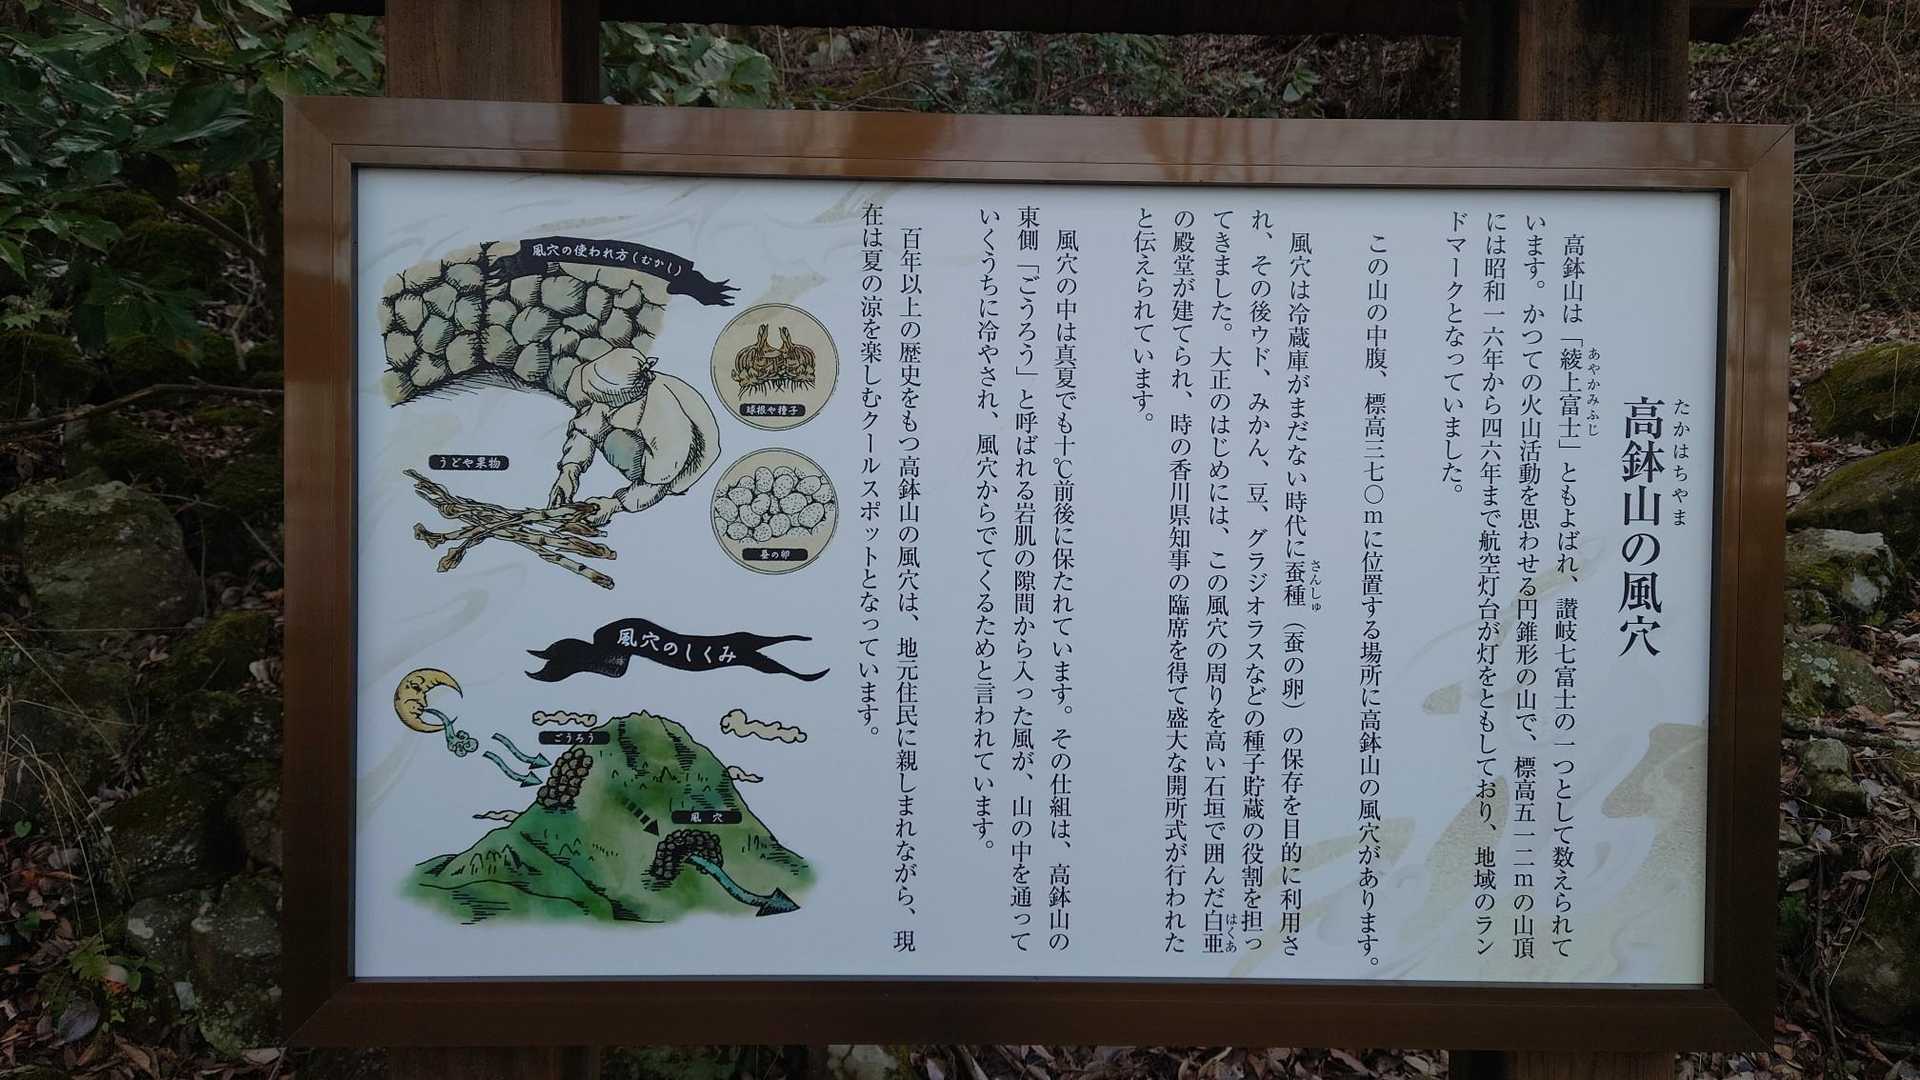 たかはちやま
高鉢山の風穴
高鉢山は「綾上富士」ともよばれ、讃岐七富士の一つとして数えられて
あやかみふじ
います。かつての火山活動を思わせる円錐形の山で、標高五一二mの山頂
には昭和一六年から四六年まで航空灯台が灯をともしており、地域のラン
ドマークとなっていました。
この山の中腹、標高三七〇mに位置する場所に高鉢山の風穴があります。
風穴は冷蔵庫がまだない時代に蚕種（蚕の卵）の保存を目的に利用さ
さんしゅ
れ、その後ウド、みかん、豆、グラジオラスなどの種子貯蔵の役割を担っ
てきました。大正のはじめには、この風穴の周りを高い石垣で囲んだ白亜
はくあ
の殿堂が建てられ、時の香川県知事の臨席を得て盛大な開所式が行われた
と伝えられています。
風穴の中は真夏でも十℃前後に保たれています。その仕組は、高鉢山の
東側「ごうろう」と呼ばれる岩肌の隙間から入った風が、山の中を通って
いくうちに冷やされ、風穴からでてくるためと言われています。
百年以上の歴史をもつ高鉢山の風穴は、地元住民に親しまれながら、現
在は夏の涼を楽しむクールスポットとなっています。
風穴の使われ方（むかし）
球根や種子
うどや果物
蚕の卵
風穴のしくみ
ごうろう
風穴